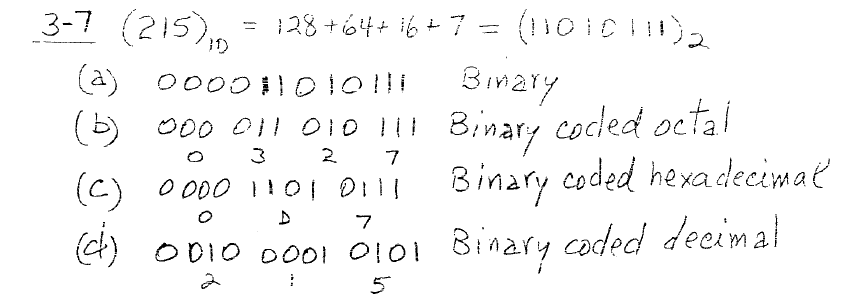 3-7 (215)10 = 128+64+16+7 = (11010111)2
(a) 000011010111 Binary
(b) 000 011 010 111 Binary coded octal
0 3 2 7
(c) 0000 1101 0111 Binary coded hexadecimal
0 D 7
(d) 0010 0001 0101 Binary coded decimal
2 1 5